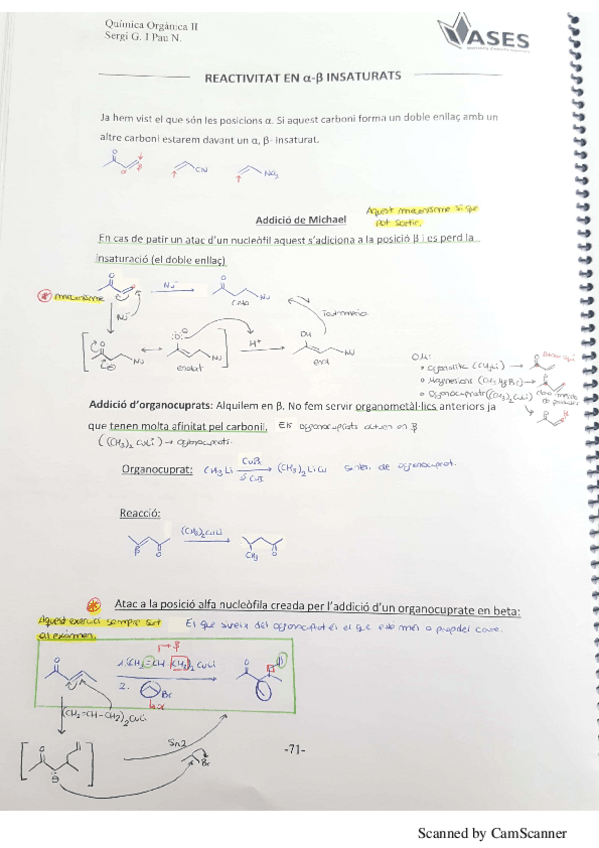 Química Orgànica II
Sergi G. I Pau N.
ASES
REACTIVITAT EN α-β INSATURATS
Ja hem vist el que són les posicions α. Si aquest carboni forma un doble enllaç amb un
altre carboni estarem davant un α, β- insaturat.
O
β
α
CN
NO₂
Addició de Michael
Aquest mecanisme sí que
pot sortir.
En cas de patir un atac d'un nucleòfil aquest s'adiciona a la posició β i es perd la
insaturació (el doble enllaç)
mecanisme
Nu⁻
Nu
Nu⁻
Nu
enolat
H⁺
OH
Nu
enol
Tautomeria
Addició d'organocuprats: Alquilem en β. No fem servir organometàl·lics anteriors ja
que tenen molta afinitat pel carbonil. Els organocuprats actuen en β
((CH₃)₂ CuLi) → organocuprats.
Organocuprat: CH₃Li CuBr (CH₃)₂LiCu síntesi de organocuprat.
Reacció:
(CH₃)₂CuLi
β
O
CH₃
O
Atac a la posició alfa nucleòfila creada per l'addició d'un organocuprate en beta:
Aquest exercici sempre surt
al exàmen.
→ β
1. (CH₂=CH-CH₂)₂CuLi
2.
Br
α
(CH₂=CH-CH₂)₂CuLi
SN2
Br
-71-
Scanned by CamScanner